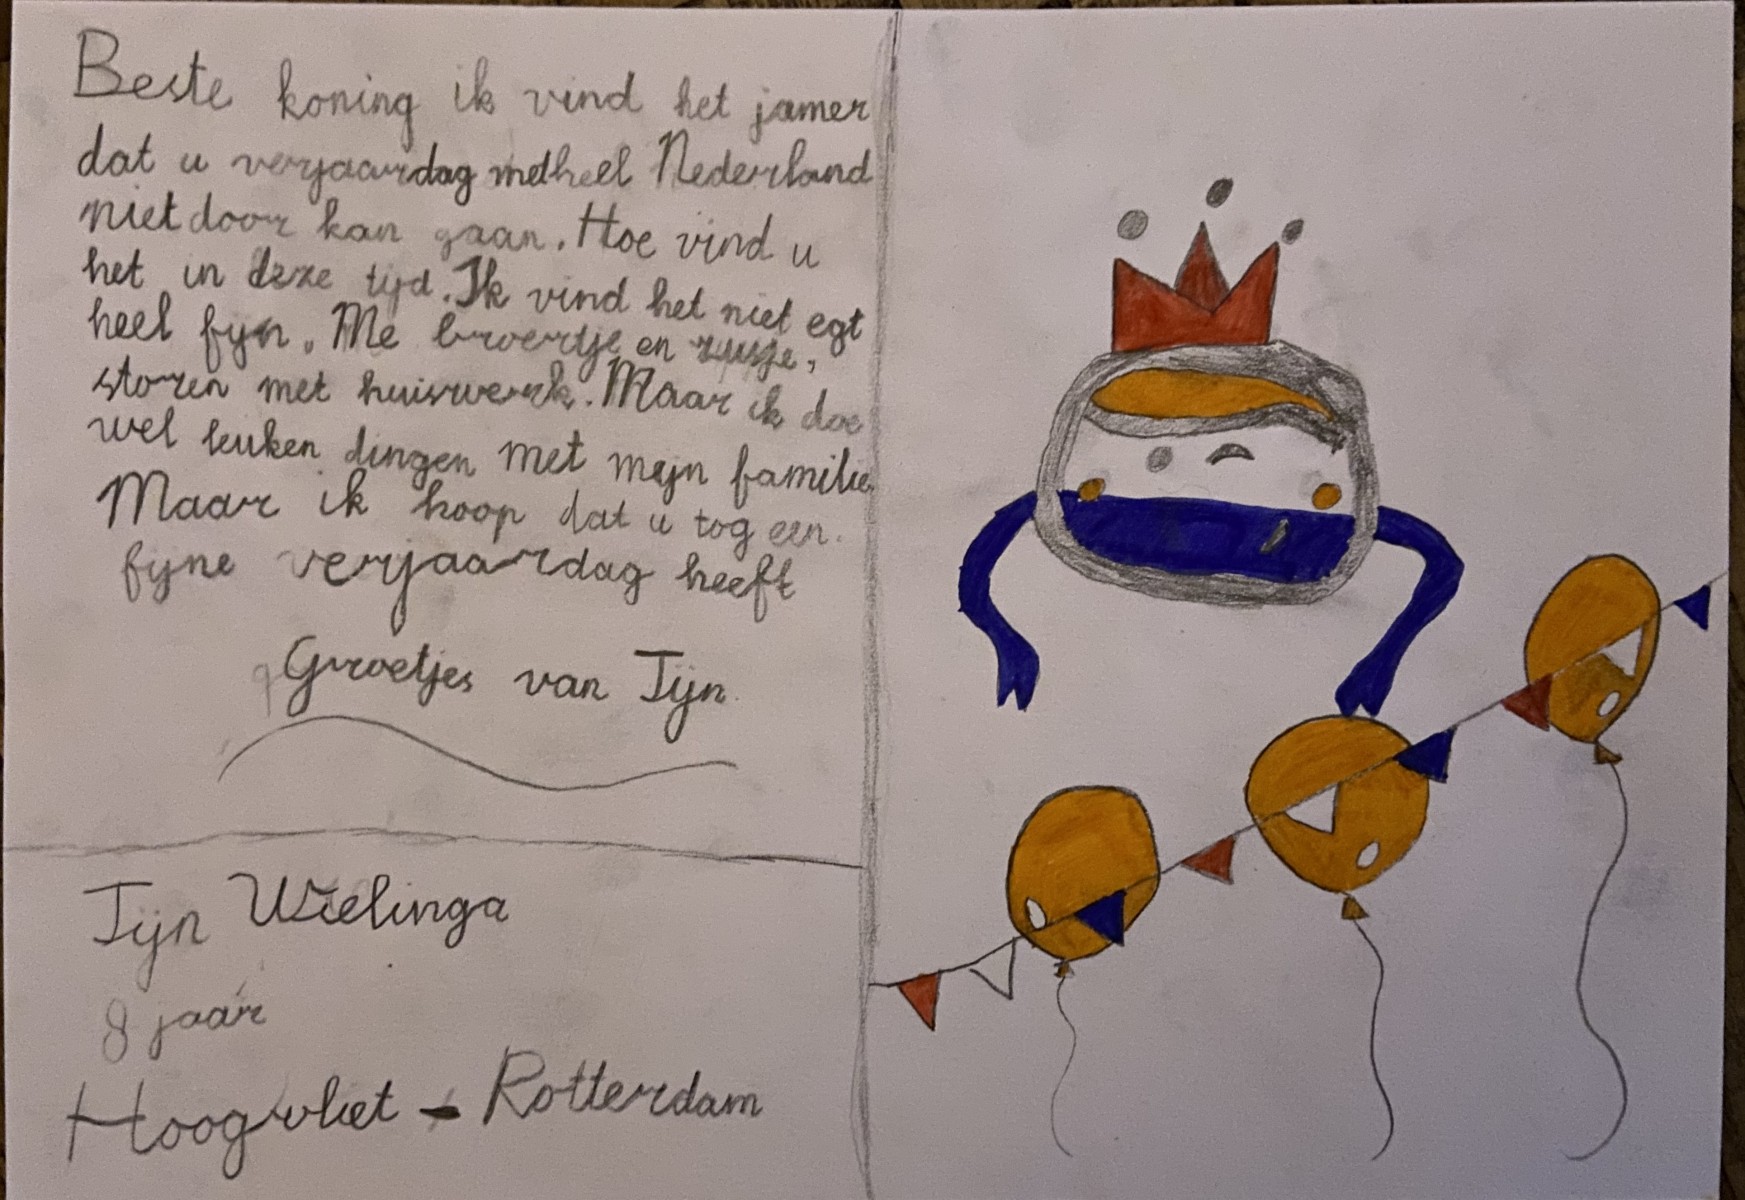 Beste koning ik vind het jamer
dat u verjaardag met heel Nederland
niet door kan gaan. Hoe vind u
het in deze tijd. Ik vind het niet egt
heel fijn. Me broertje en zusje,
storen met huiswerk. Maar ik doe
wel leuken dingen met mijn familie
Maar ik hoop dat u tog een
fijne verjaardag heeft
Groetjes van Tijn
Tijn Wielinga
8 jaar
Hoogvliet - Rotterdam